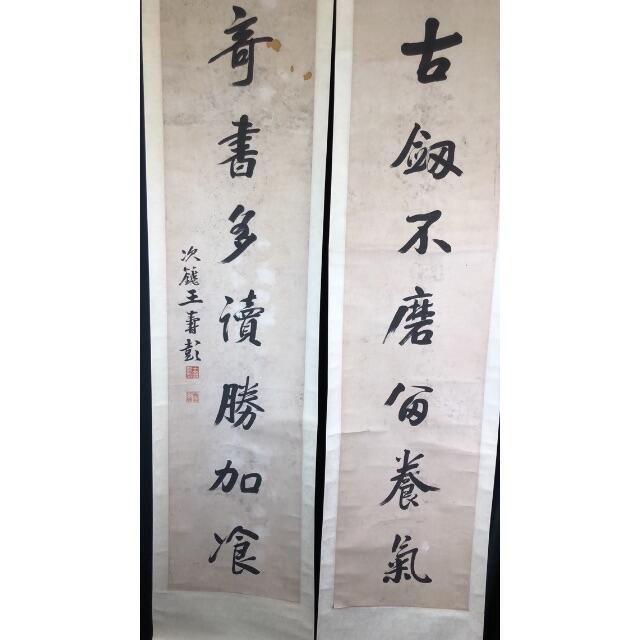 古劔不磨留養氣
奇書多讀勝加飡
次籛王壽彭